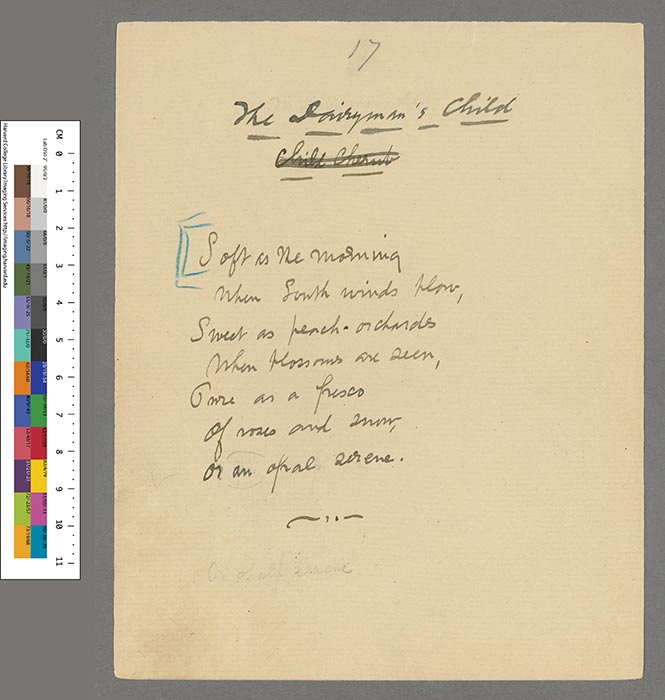 17
The Dairyman's Child
Child Cherub
Soft as the morning
When South winds blow,
Sweet as peach-orchards
When blossoms are seen,
Pure as a fresco
Of roses and snow,
Or an opal serene.
Or opal serene
CM 0 1 2 3 4 5 6 7 8 9 10 11
Harvard College Library Imaging Services http://imaging.harvard.edu